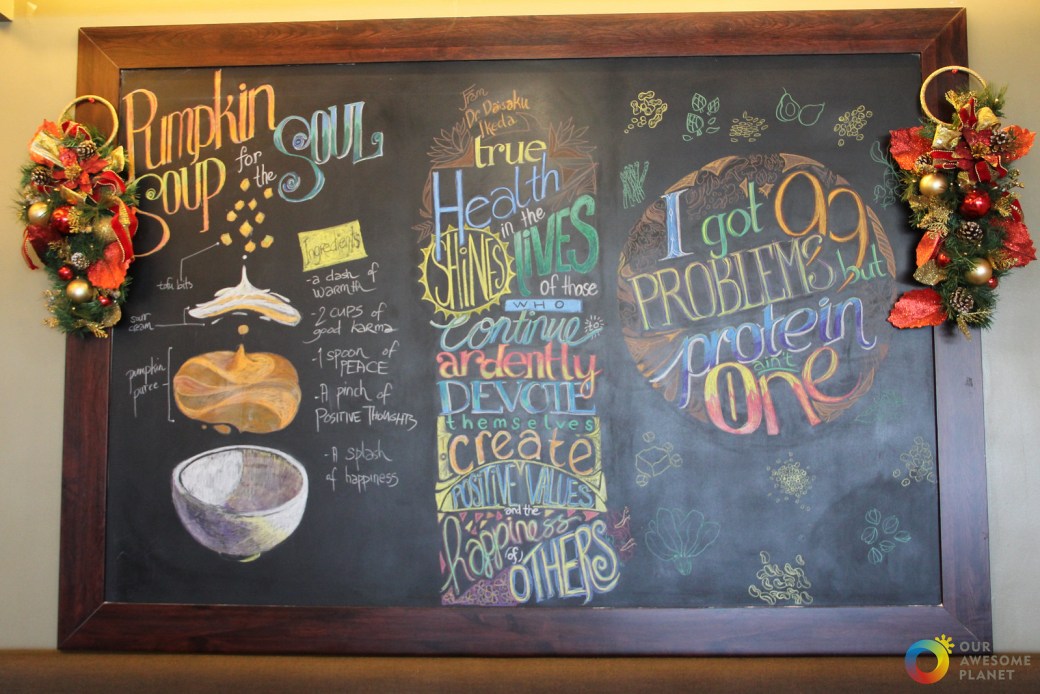 Pumpkin
Soup for the SOUL
tofu bits
sour cream
pumpkin puree
Ingredients
-a dash of WARMTH
-2 CUPS of good karma
-1 SPOON of PEACE
-A PINCH of POSITIVE THOUGHTS
-A splash of happiness
From Dr. Daisaku Ikeda
true
Health
in the
SHINES
LIVES
of those
WHO
continue to
ardently
DEVOTE
themselves
to create
POSITIVE VALUES
and the
happiness
of
OTHERS
I got 99
PROBLEMS, but
protein
ain't
One
OUR
AWESOME
PLANET